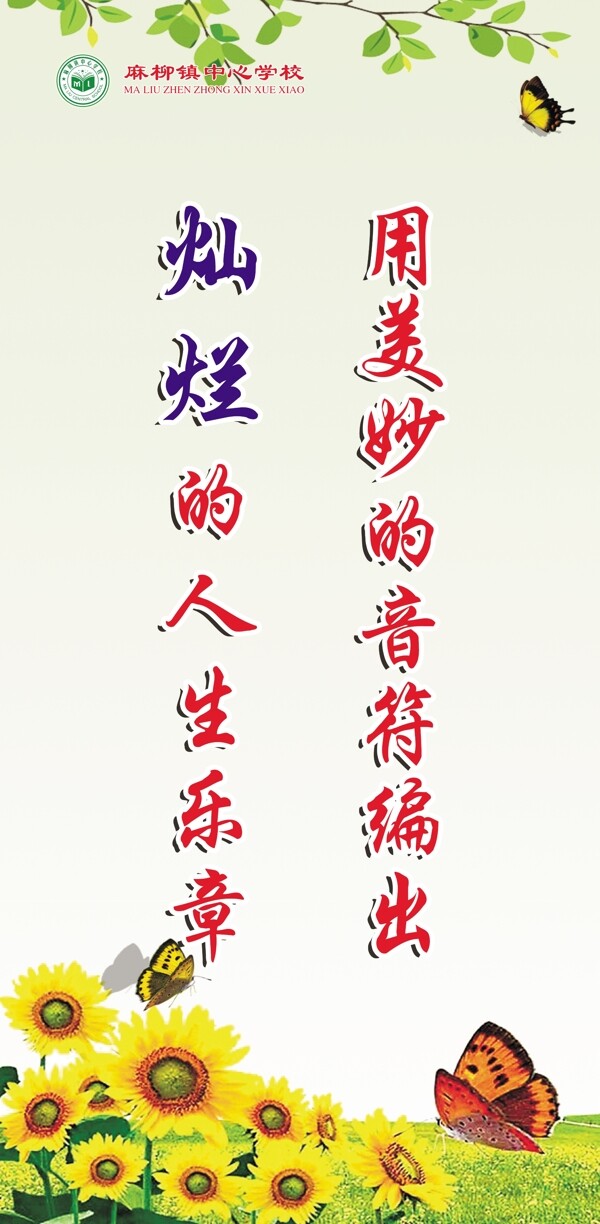 麻柳镇中心学校
MA LIU ZHEN ZHONG XIN XUE XIAO
用美妙的音符编出
灿烂的人生乐章